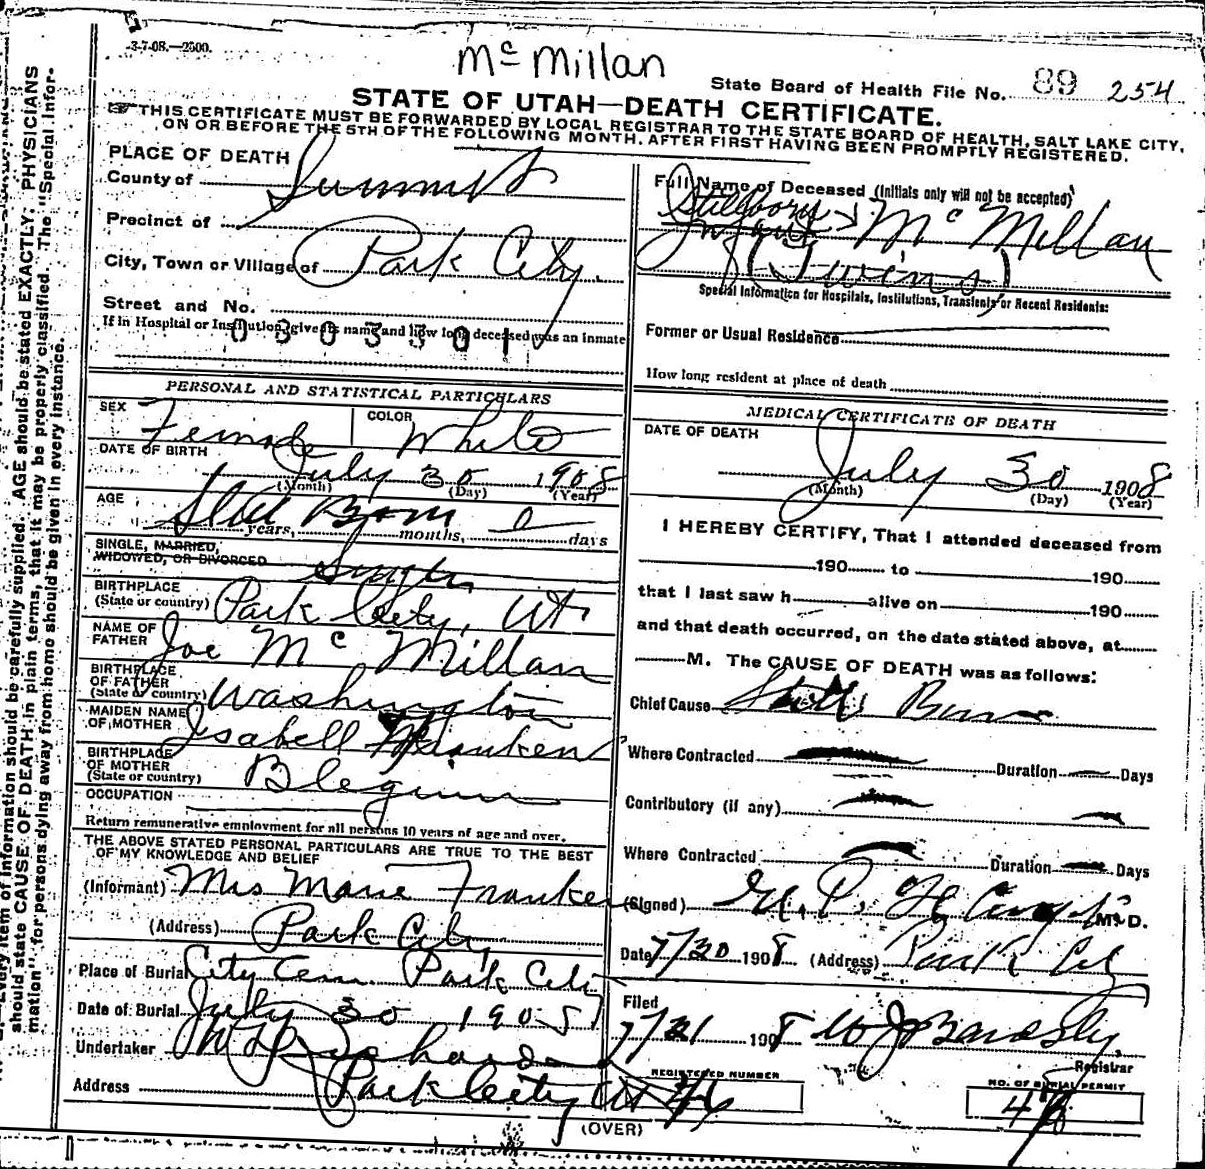 3-7-08.—2000.
Mc Millan
State Board of Health File No. 89 254
STATE OF UTAH—DEATH CERTIFICATE.
☞ THIS CERTIFICATE MUST BE FORWARDED BY LOCAL REGISTRAR TO THE STATE BOARD OF HEALTH, SALT LAKE CITY,
ON OR BEFORE THE 5TH OF THE FOLLOWING MONTH, AFTER FIRST HAVING BEEN PROMPTLY REGISTERED.
PLACE OF DEATH
County of Summit
Precinct of
City, Town or Village of Park City
Street and No.
If in Hospital or Institution, give its name and how long deceased was an inmate
0303301
Full Name of Deceased (Initials only will not be accepted)
Stillborn
Infant Mc Millan
(Twins)
Special Information for Hospitals, Institutions, Transients or Recent Residents:
Former or Usual Residence
How long resident at place of death
PERSONAL AND STATISTICAL PARTICULARS
SEX Female COLOR White
DATE OF BIRTH
July 30 1908
(Month) (Day) (Year)
AGE Still Born 0
years, months, days
SINGLE, MARRIED,
WIDOWED, OR DIVORCED Single
BIRTHPLACE
(State or country) Park City, Ut
NAME OF
FATHER Joe Mc Millan
BIRTHPLACE
OF FATHER
(State or country) Washington
MAIDEN NAME
OF MOTHER Isabell Franken
BIRTHPLACE
OF MOTHER
(State or country) Blegium
OCCUPATION
Return remunerative employment for all persons 10 years of age and over.
THE ABOVE STATED PERSONAL PARTICULARS ARE TRUE TO THE BEST
OF MY KNOWLEDGE AND BELIEF
(Informant) Mrs Marie Franken
(Address) Park City
Place of Burial City Cem. Park City
Date of Burial July 30 1908
Undertaker
Address Park City Ut
MEDICAL CERTIFICATE OF DEATH
DATE OF DEATH
July 30 1908
(Month) (Day) (Year)
I HEREBY CERTIFY, That I attended deceased from
190 to 190
that I last saw h alive on 190
and that death occurred, on the date stated above, at
M. The CAUSE OF DEATH was as follows:
Chief Cause Still Born
Where Contracted Duration Days
Contributory (if any)
Where Contracted Duration Days
(Signed) M. D.
Date 7/30 1908 (Address) Park City
Filed
7/31 1908 W J Bardsley
Registrar
REGISTERED NUMBER
46
NO. OF BURIAL PERMIT
(OVER)
Every item of information should be carefully supplied. AGE should be stated EXACTLY. PHYSICIANS
should state CAUSE OF DEATH in plain terms, that it may be properly classified. The "Special Infor-
mation" for persons dying away from home should be given in every instance.